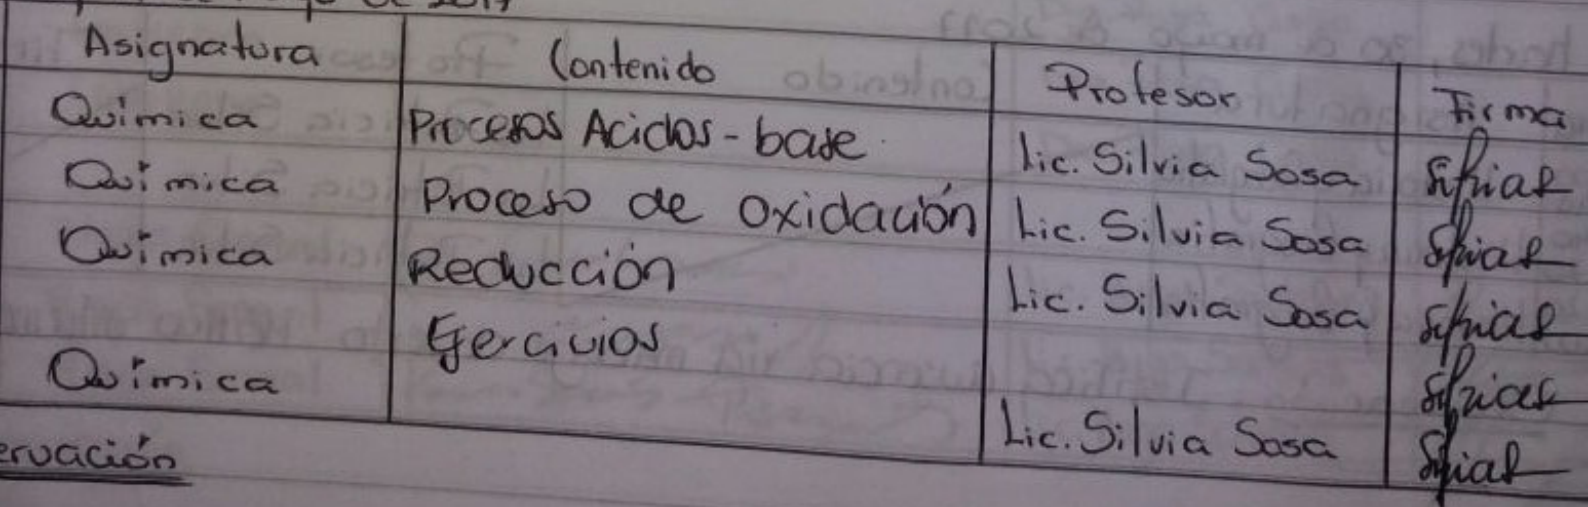 de 2017
Asignatura Contenido Profesor Firma
Química Procesos Acidos-base Lic. Silvia Sosa
Química Proceso de oxidación Lic. Silvia Sosa
Química Reducción Lic. Silvia Sosa
Ejercicios
Química Lic. Silvia Sosa
ervación